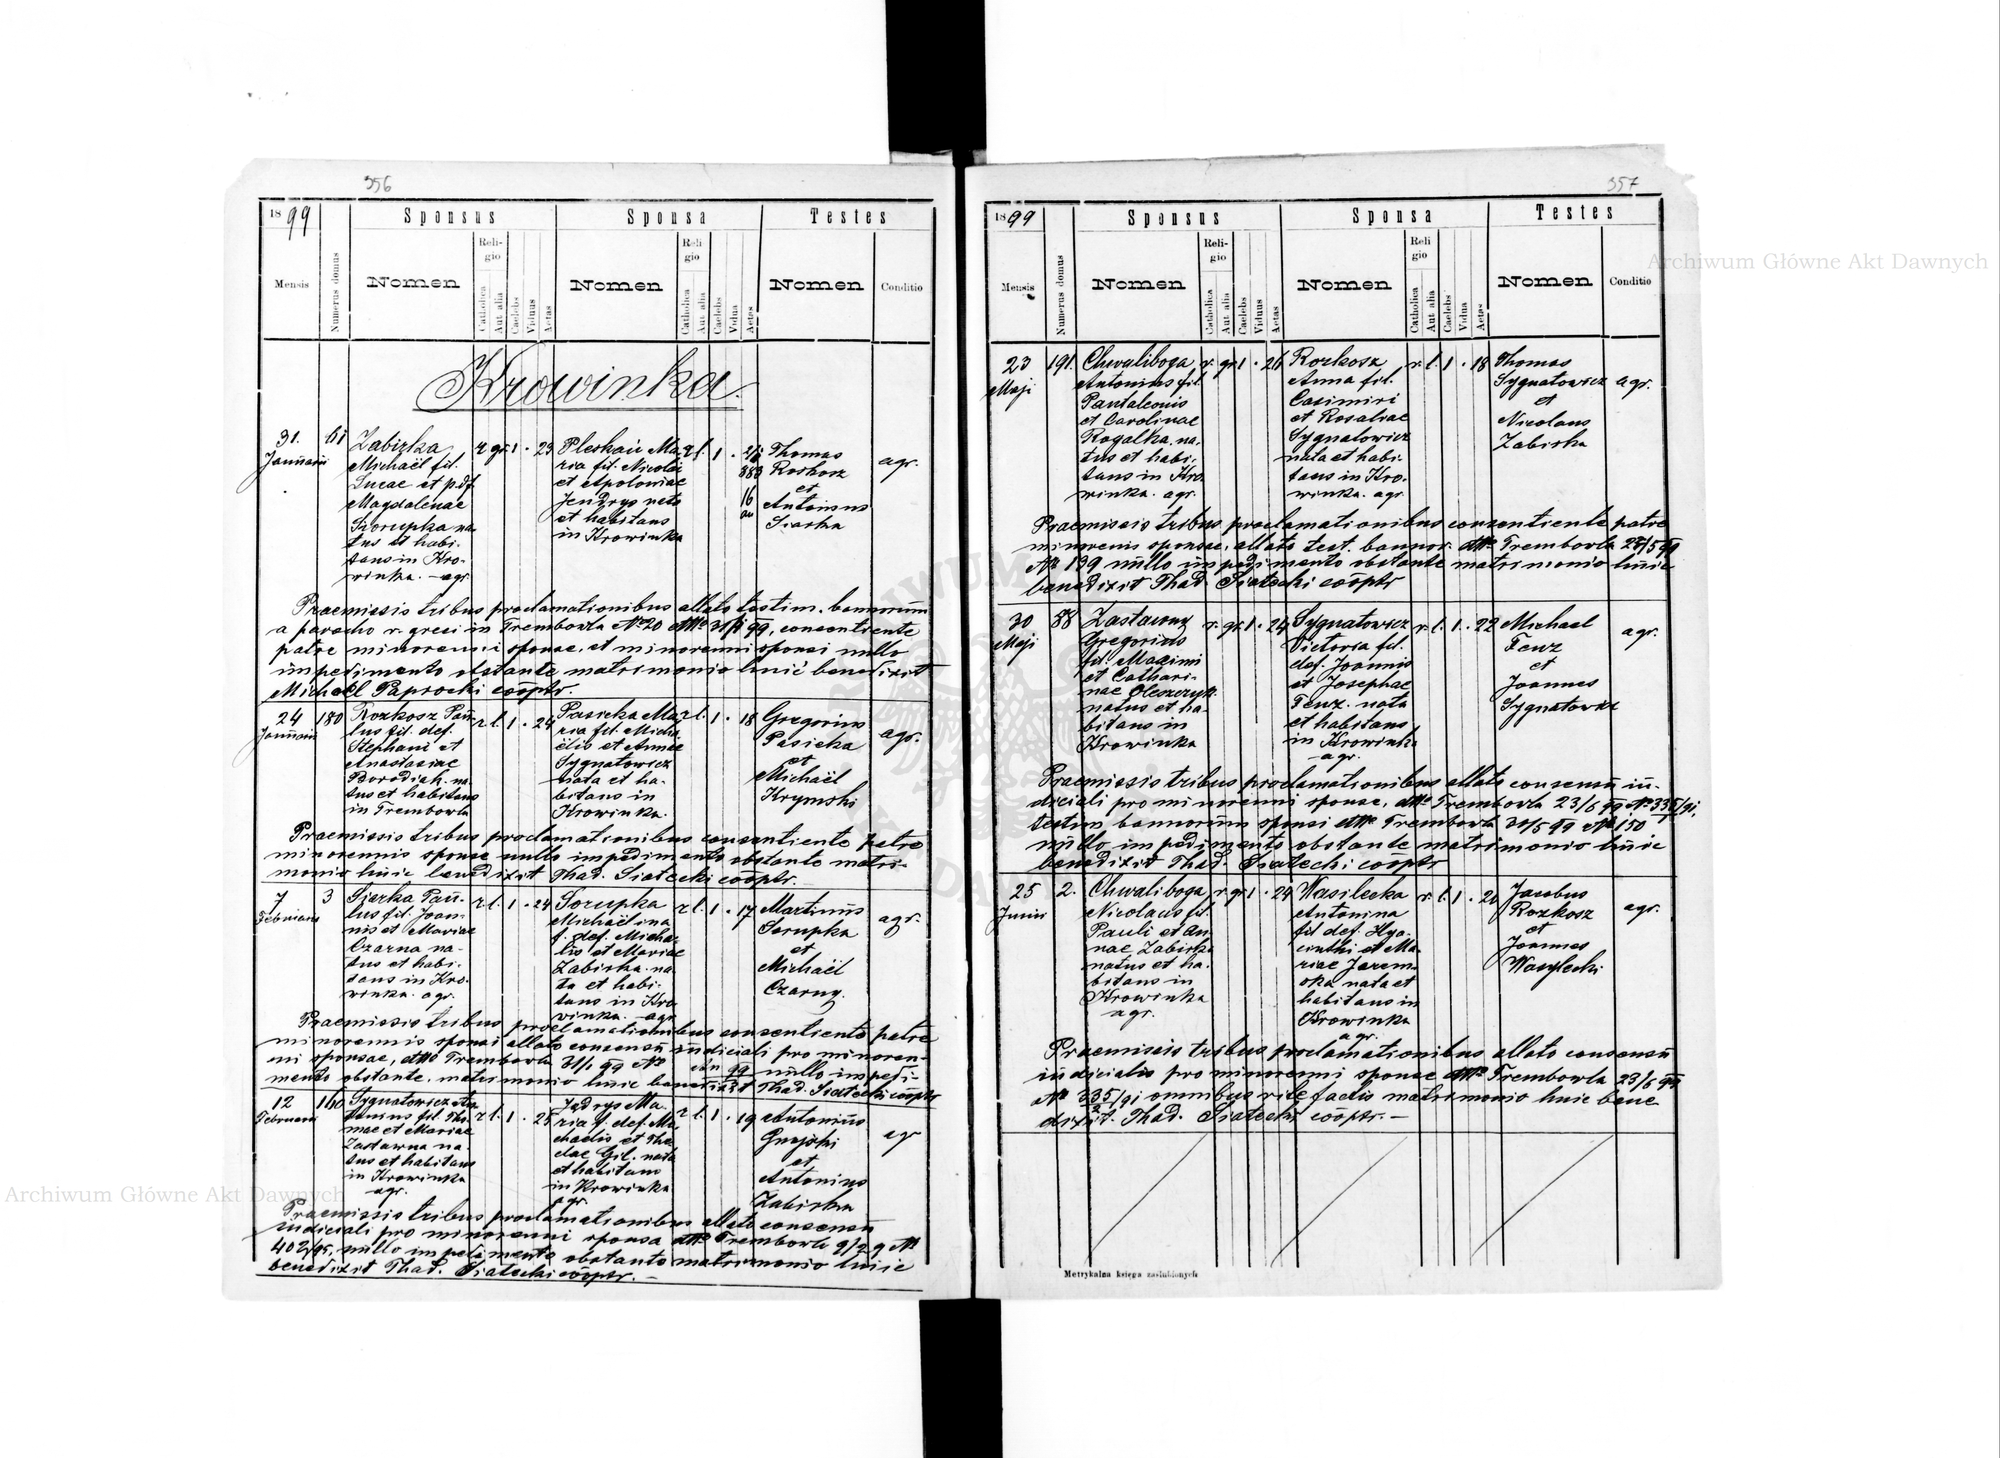 356
1899
Sponsus
Sponsa
Testes
Mensis
Numerus domus
Nomen
Religio
Catholica
Aut alia
Caelebs
Viduus
Aetas
Nomen
Religio
Catholica
Aut alia
Caelebs
Vidua
Aetas
Nomen
Conditio
Krowinka.
31.
Januarii
61
Zabirka
Michaël fil.
Lucae et p.df
Magdalenae
Skorupka na
tus et habi-
tans in Kro-
winka. - agr.
r gr. 1 . 23
Pleskań Ma-
ria fil. Nicolai
et Apoloniae
Jendrys nata
et habitans
in Krowinka
r l. 1 .
883
16
an
Thomas
Roskosz
et
Antonius
Siarka
agr.
Praemissis tribus proclamationibus allato testim. bannorum
a parocho r. greci in Trembowla No 20 dtto 31/1 99, consentiente
patre minorenni sponsae, et minorenni sponsi nullo
impedimento obstante matrimonio huic benedixit
Michael Paprocki cooptr.
24
Januarii
180
Rozkosz Pau-
lus fil. def.
Stephani et
Anastasiae
Borodiak. na-
tus et habitans
in Trembowla
r l. 1 . 24
Pasieka Ma-
ria fil. Micha-
ëlis et Annae
Sygnatowicz
nata et ha-
bitans in
Krowinka.
r l. 1 . 18
Gregorius
Pasieka
et
Michaël
Krymski
agr.
Praemissis tribus proclamationibus consentiente patre
minorennis sponsae nullo impedimento obstante matri-
monio huic benedixit Thad. Siatecki cooptr.
7
Februarii
3
Sierka Pau-
lus fil. Joan-
nis et Mariae
Czarna na-
tus et habi-
tans in Kro-
winka. agr.
r l. 1 . 24
Sorupka
Michaëlina
f. def. Micha-
lis et Mariae
Zabirka. na-
ta et habi-
tans in Kro
winka. agr
r l. 1 . 17
Martinus
Sorupka
et
Michaël
Czarny.
agr.
Praemissis tribus proclamationibus consentiente patre
minorennis sponsi allato consensu iudiciali pro minoren-
ni sponsae, dtto Trembowla 31/1 99 No nullo impedi-
mento obstante. matrimonio huic benedixit Thad. Siatecki cooptr
12
Februarii
160
Sygnatowicz An-
tonius fil. Tho-
mae et Mariae
Zastawna na-
tus et habitans
in Krowinka
agr.
r l. 1 . 25
Jadrys Ma-
ria f. def. Mi-
chaelis et The-
clae Gil. nata
et habitans
in Krowinka
agr.
r l. 1 . 19
Antonius
Gnojski
et
Antonius
Zabirka
agr
Praemissis tribus proclamationibus allato consensu
iudiciali pro minorenni sponsa dtto Trembowla 9/2 9 No
402/95, nullo impedimento obstante matrimonio huic
benedixit Thad. Siatecki cooptr. -
357
1899
Sponsus
Sponsa
Testes
Mensis
Numerus domus
Nomen
Religio
Catholica
Aut alia
Caelebs
Viduus
Aetas
Nomen
Religio
Catholica
Aut alia
Caelebs
Vidua
Aetas
Nomen
Conditio
23
Maji
191.
Chwaliboga
Antonius fil.
Pantaleonis
et Carolinae
Rogalka. na-
tus et habi-
tans in Kro-
winka. agr.
r. gr. 1 . 26
Rozkosz
Anna fil.
Casimiri
et Rosaliae
Sygnatowicz
nata et habi-
tans in Kro-
winka. agr.
r. l. 1 . 18
Thomas
Sygnatowicz
et
Nicolaus
Zabirka
agr.
Praemissis tribus proclamationibus consentiente patre
minorenis sponsae, allato test. bannor. dtto Trembowla 23/5 99
No 139 nullo impedimento obstante matrimonio huic
benedixit Thad. Siatecki cooptr
30
Maji
88
Zastawny
Gregorius
fil. Maximi
et Cathari-
nae Oleszczyk.
natus et ha-
bitans in
Krowinka
r. gr. 1 . 24
Sygnatowicz
Victoria fil.
def. Joannis
et Josephae
Fenz. nata
et habitans
in Krowinka
agr.
r. l. 1 . 22
Michael
Fenz
et
Joannes
Sygnatowicz
agr.
Praemissis tribus proclamationibus allato consensu iu-
diciali pro minorenni sponsae, dtto Trembowla 23/5 99 No 335/91,
testim bannorum sponsi dtto Trembowla 31/5 99 No 150
nullo impedimento obstante matrimonio huic
benedixit Thad. Siatecki cooptr
25
Junii
2.
Chwaliboga
Nicolaus fil.
Pauli et An-
nae Zabirka
natus et ha-
bitans in
Krowinka
agr.
r. gr 1 . 29
Wasilecka
Antonina
fil def. Hya-
cinthi et Ma-
riae Jarem-
oka nata et
habitans in
Krowinka
agr.
r. l. 1 . 20
Jacobus
Rozkosz
et
Joannes
Wasylecki
agr.
Praemissis tribus proclamationibus allato consensu
iudicialis pro minorenni sponsae dtto Trembowla 23/5 99
No 335/91 omnibus rite factis matrimonio huic bene
dixit. Thad. Siatecki cooptr. -
Metrykalna księga zaślubionych
Archiwum Główne Akt Dawnych
Archiwum Główne Akt Dawnych